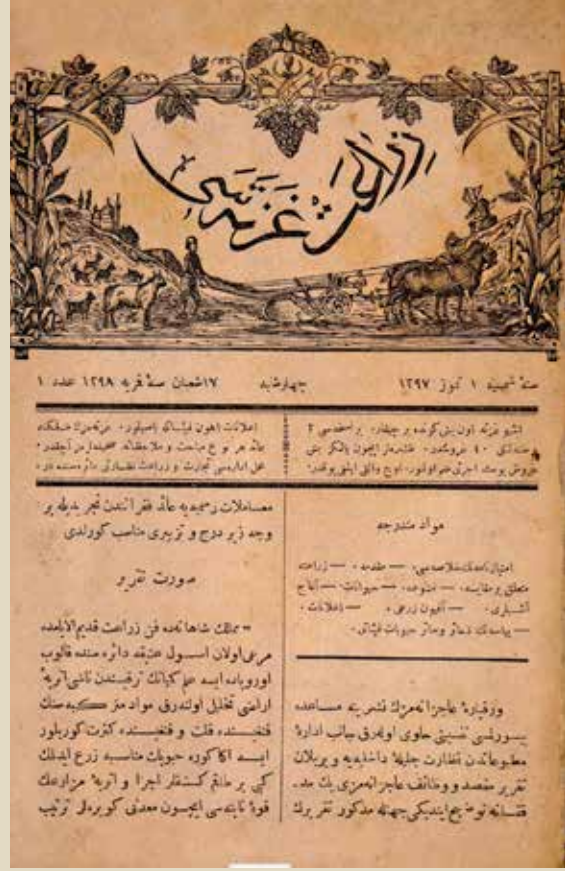 زراعت غزته سی
سنهٔ شمسیه ١ تموز ١٢٩٧ چهارشنبه ١٧ شعبان سنهٔ قمریه ١٢٩٨ عدد ١
اشبو غزته اون بش كونده بر چیقار. بر نسخه‌سی ٢
سنه‌لكی ٤٠ غروشدر. طشره‌لر ایچون یالكز بش
غروش پوسته اجرتی ضم اولنور.
اعلانات ایچون
عائد هر نوع مباحث و ملاحظاته صحیفه‌لرمز آچیقدر.
محل اداره‌سی تجارت و زراعت نظارتی دائره‌سنده در.
مواد مندرجه
امتیازنامه‌نك خلاصه‌سی. — مقدمه. — زراعته
متعلق بر مقایسه. — متنوعه. — حیوانات. — آغاج
آشیلری. — آفیون زرعی. — اعلانات.
— پیاسه‌نك ذخائر و سائر حبوبات فیئاتی.
ورقپارهٔ عاجزانه‌مزك نشرینه مساعده
بیورلمسی حاوی اوله‌رق جانب ادارهٔ
مطبوعاتدن نظارت جلیلهٔ داخلیه‌یه ویریلان
تقریر مقصد و وظائف عاجزانه‌مزی
توضیح ایتدیكی جهتله مذكور تقریرك
معاملات رسمیه‌یه عائد فقراتندن تجریدیله بر
وجه زیر درج و تزبیری مناسب كورلدی
صورت تقریر
« ممالك شاهانه‌ده فن زراعت قدیم الایامده
مرعی اولان اصول عتیقه دائره‌سنده قالوب
اوروپاده ایسه علم كیمیانك ترقیسندن ناشی اتربهٔ
اراضی تحلیل اولنه‌رق مواد متركبه‌سنك
قنغیسنده قلت و قنغیسنده كثرت كوریلور
ایسه اكا كوره حبوبات مناسبه زرع ایدلك
كبی بر طاقم كشفلر اجرا و اتربهٔ مزارعك
قوهٔ نابته‌سی ایچون معدنی كوبره‌لر ترتیب